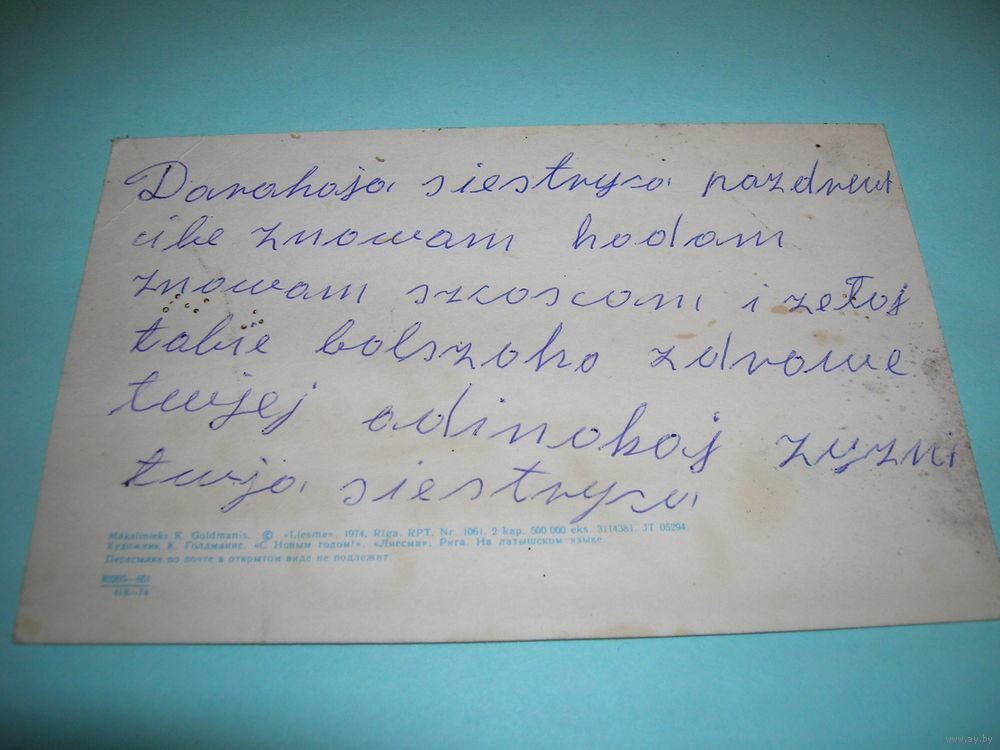 Darahaja siestryca pazdrew
cibe znowam hodam
znowam szcoscam i zełaj
tabie bolszoho zdrowe
twjej odinokoj zyzni
twja siestryca
Mākslinieks K. Goldmanis. © «Liesma», 1974, Rīga. RPT. Nr. 1061. 2 kap. 500 000 eks. 3114381. JT 05294.
Художник К. Голдманис. «С Новым годом!». «Лиесма», Рига. На латышском языке.
Пересылке по почте в открытом виде не подлежит.
418—74
www.ay.by